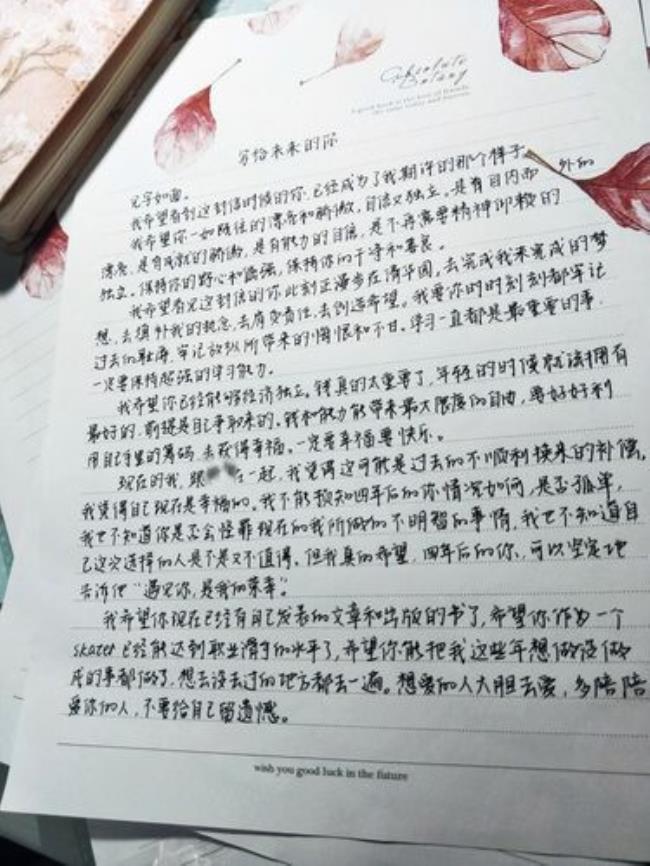 Absolute
Botany
写给未来的你
见字如面。
我希望看到这封信时候的你,已经成为了我期许的那个样子。
我希望你一如既往的漂亮和骄傲,自洁又独立。是有自内而外的
漂亮,是有成就的骄傲,是有能力的自信,是不再需要精神仰赖的
独立。保持你的野心和倔强,保持你的干净和善良。
我希望看见这封信的你此刻正漫步在清华园,去完成我未完成的梦
想,去填补我的执念,去肩负责任,去创造希望。我要你时时刻刻都牢记
过去的耻辱,牢记放纵所带来的悔恨和不甘。学习一直都是最重要的事,
一定要保持超强的学习能力。
我希望你已经能够经济独立。钱真的太重要了,年轻的时候就该拥有
最好的,前提是自己争取来的。钱和能力能带来最大限度的自由,要好好利
用自己手里的筹码,去获得幸福。一定要幸福要快乐。
现在的我,跟 在一起,我觉得这可能是过去的不顺利换来的补偿,
我觉得自己现在是幸福的。我不能预知四年后的你情况如何,是否孤单,
我也不知道你是否会怪罪现在的我所做的不明智的事情,我也不知道自
己这次选择的人是不是又不值得。但我真的希望,四年后的你,可以坚定地
告诉他“遇见你,是我的荣幸”。
我希望你现在已经有自己发表的文章和出版的书了,希望你作为一个
skater 已经能达到职业滑手的水平了,希望你能把我这些年想做没做
成的事都做了,想去没去过的地方都去一遍。想爱的人大胆去爱,多陪陪
爱你的人,不要给自己留遗憾。
wish you good luck in the future